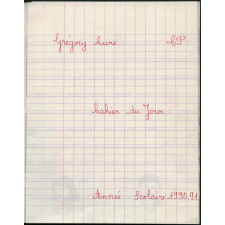 Gregory Curé CP
Cahier du Jour
Année Scolaire 1990.91